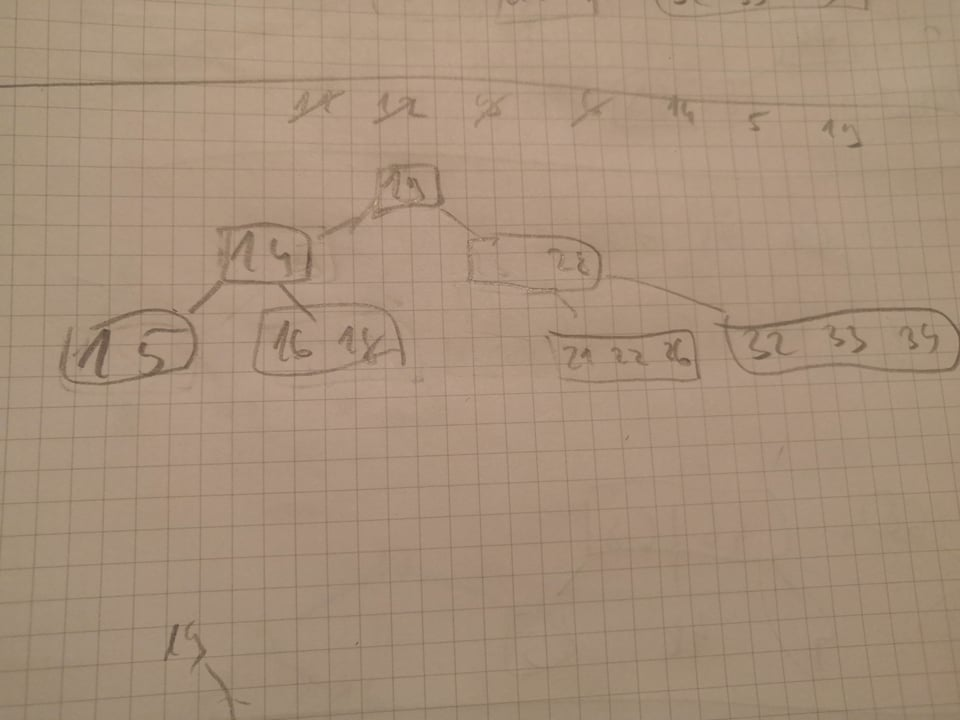 18 12 14 5 19
19
14 28
1 5 16 18 21 22 26 32 33 34
19